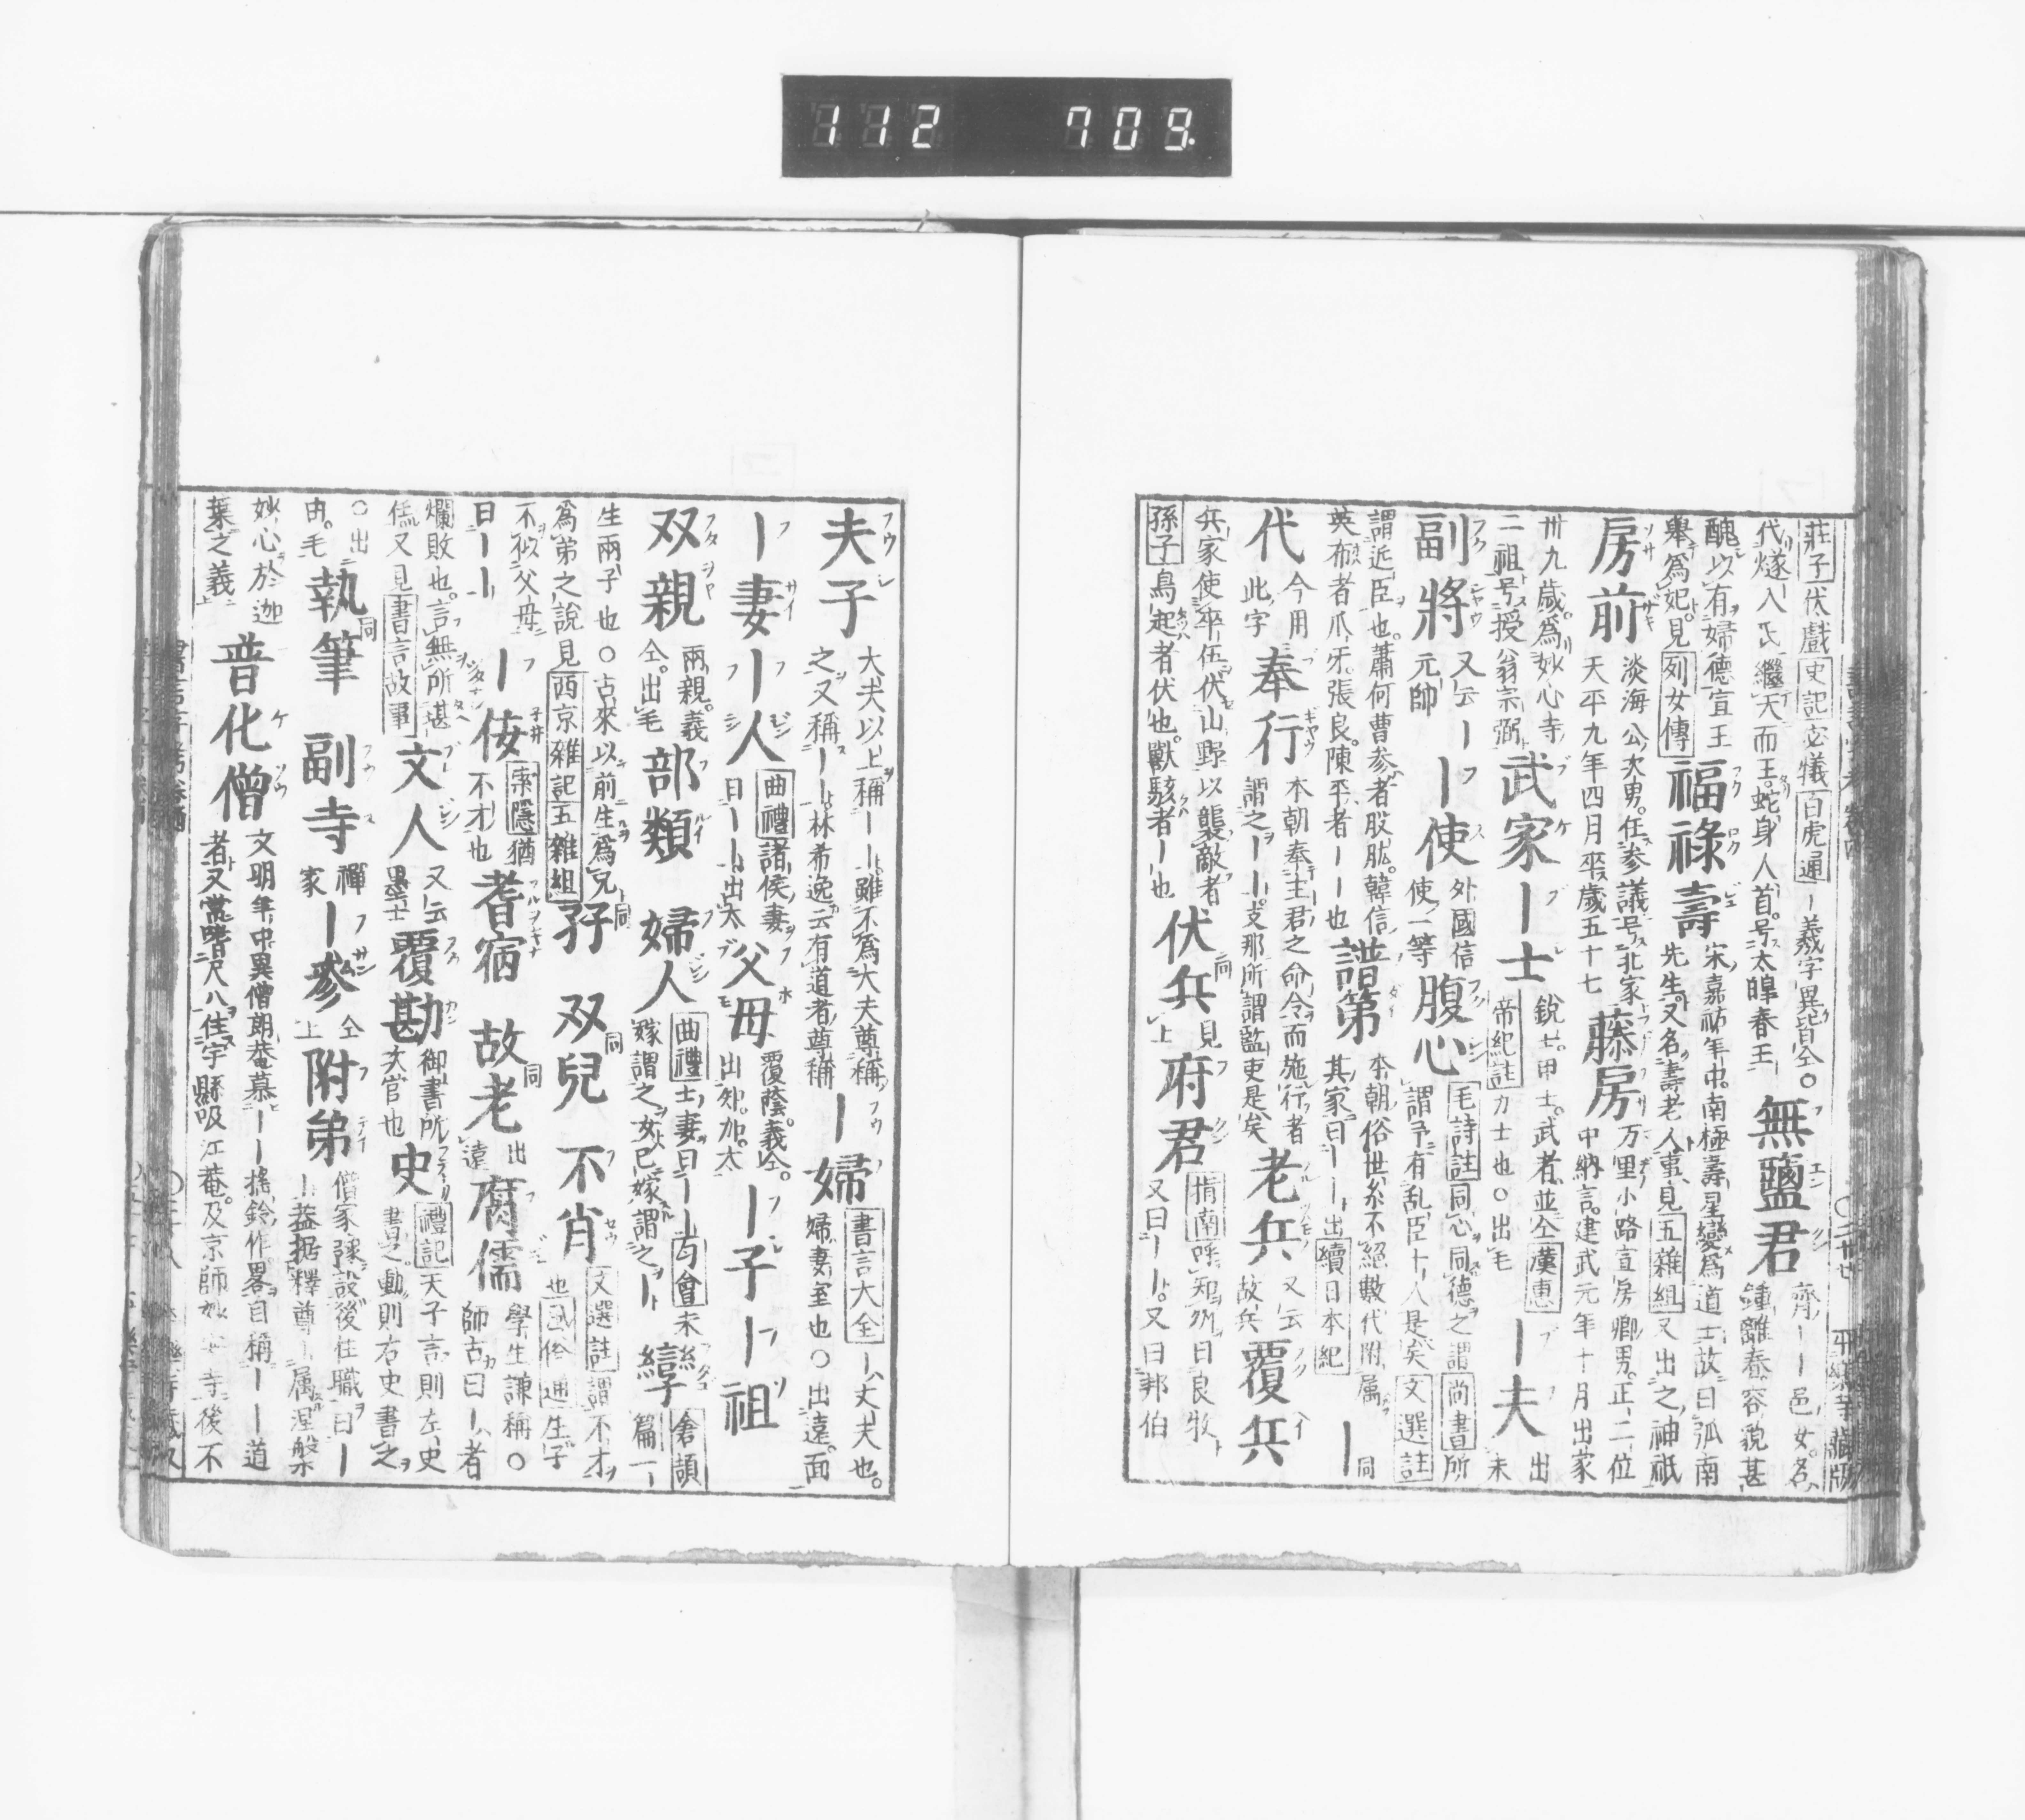 112 709
莊子伏戲史記宓犧白虎通ー羲字異皆仝○
代燧人氏繼天而王蛇身人首号太皥春王
無鹽君
齊ーー邑女名
鍾離春容貌甚
醜以有婦德宣王
舉爲妃見列女傳
福祿壽
宋嘉祐年中南極壽星變爲道士故曰弧南
先生又名壽老人事見五雜組又出之神祇
房前
淡海公次男任參議号北家
天平九年四月卒歲五十七
藤房
万里小路宣房卿男正二位
中納言建武元年十月出家
卅九歲爲妙心寺
二祖号授翁宗弼
武家
ー士
銳士甲士武者並仝漢惠
帝紀註力士也○出毛
ー夫
出
未
副將
又云ー
元帥
ー使
外國信
使一等
腹心
毛詩註同心同德之謂尚書所
謂予有亂臣十人是矣文選註
謂近臣也蕭何曹參者股肱韓信
英布者爪牙張良陳平者ーー也
譜第
本朝俗世系不絕數代附属
其家曰ーー出續日本紀
ー
同
代
今用
此字
奉行
本朝奉主君之命令而施行者
謂之ーー支那所謂監吏是矣
老兵
又云
故兵
覆兵
兵家使卒伍伏山野以襲敵者
孫子鳥起者伏也獸駭者ー也
伏兵
同
見
上
府君
指南呼知州曰良牧
又曰ーー又曰邦伯
夫子
大夫以上稱ーー雖不爲大夫尊稱
之又稱ーー林希逸云有道者尊稱
ー婦
書言大全ー丈夫也
婦妻室也○出遠面
ー妻
ー人
曲禮諸侯妻
曰ーー出太
父母
覆蔭義仝
出知加太
ー子
ー祖
双親
兩親義
仝出毛
部類
婦人
曲禮士妻曰ーー韵會未
嫁謂之女已嫁謂之ー
孿
倉頡
篇一
生兩子也○古來以前生爲兄
爲弟之說見西京雜記五雜組
孖
同
双兒
同
不肖
文選註謂不才
也風俗通生子
不似父母
曰ーー
ー侫
索隱猶
不才也
耆宿
故老
同
出
遠
腐儒
學生謙稱○
師古曰ー者
爛敗也言無所堪
任又見書言故事
文人
又云
墨士
覆勘
御書所
次官也
史
禮記天子言則左史
書之動則右史書之
○出
由毛
執筆
同
副寺
禪
家
ー參
仝
上
附弟
僧家豫設後住職曰ー
ー益据釋尊ー属涅槃
妙心於迦
葉之義
普化僧
文明年中異僧朗菴慕ーー搖鈴作畧自稱ーー道
者又常嗜尺八住宇縣吸江菴及京師妙安寺後不